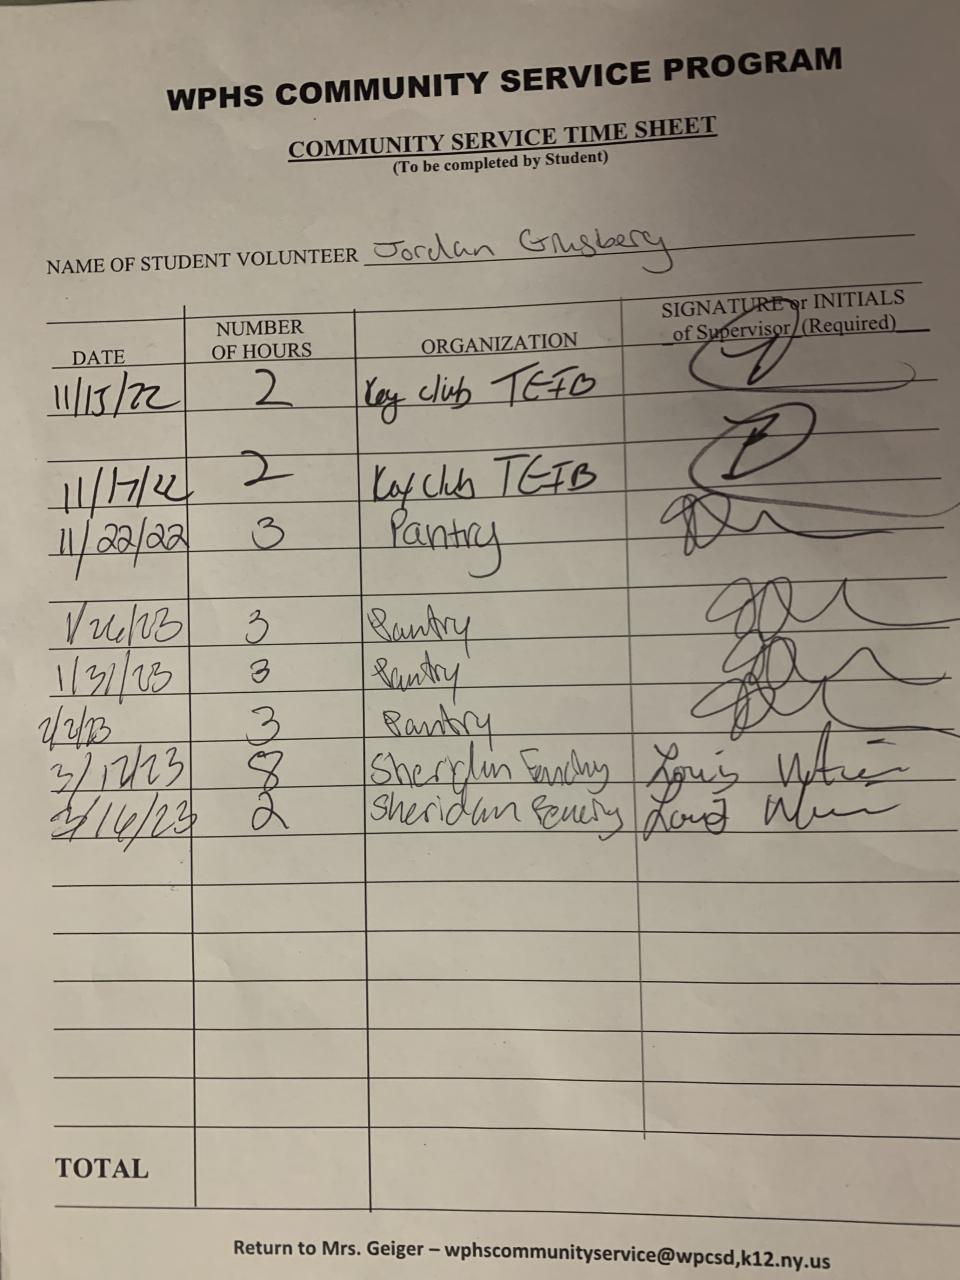 WPHS COMMUNITY SERVICE PROGRAM
COMMUNITY SERVICE TIME SHEET
(To be completed by Student)
NAME OF STUDENT VOLUNTEER Jordan Ginsberg
DATE NUMBER OF HOURS ORGANIZATION SIGNATURE or INITIALS of Supervisor (Required)
11/15/22 2 Key club TEIB
11/17/22 2 Key club TEIB
11/22/22 3 Pantry
1/26/23 3 Pantry
1/31/23 3 Pantry
2/2/23 3 Pantry
3/12/23 8 Sheridan Fencing Louis
3/16/23 2 Sheridan
TOTAL
Return to Mrs. Geiger – wphscommunityservice@wpcsd,k12.ny.us